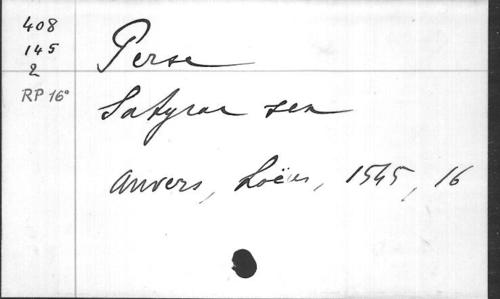 408
145
2
RP 16°
Perse
Satyrae sex
Anvers, Loëus, 1545, 16